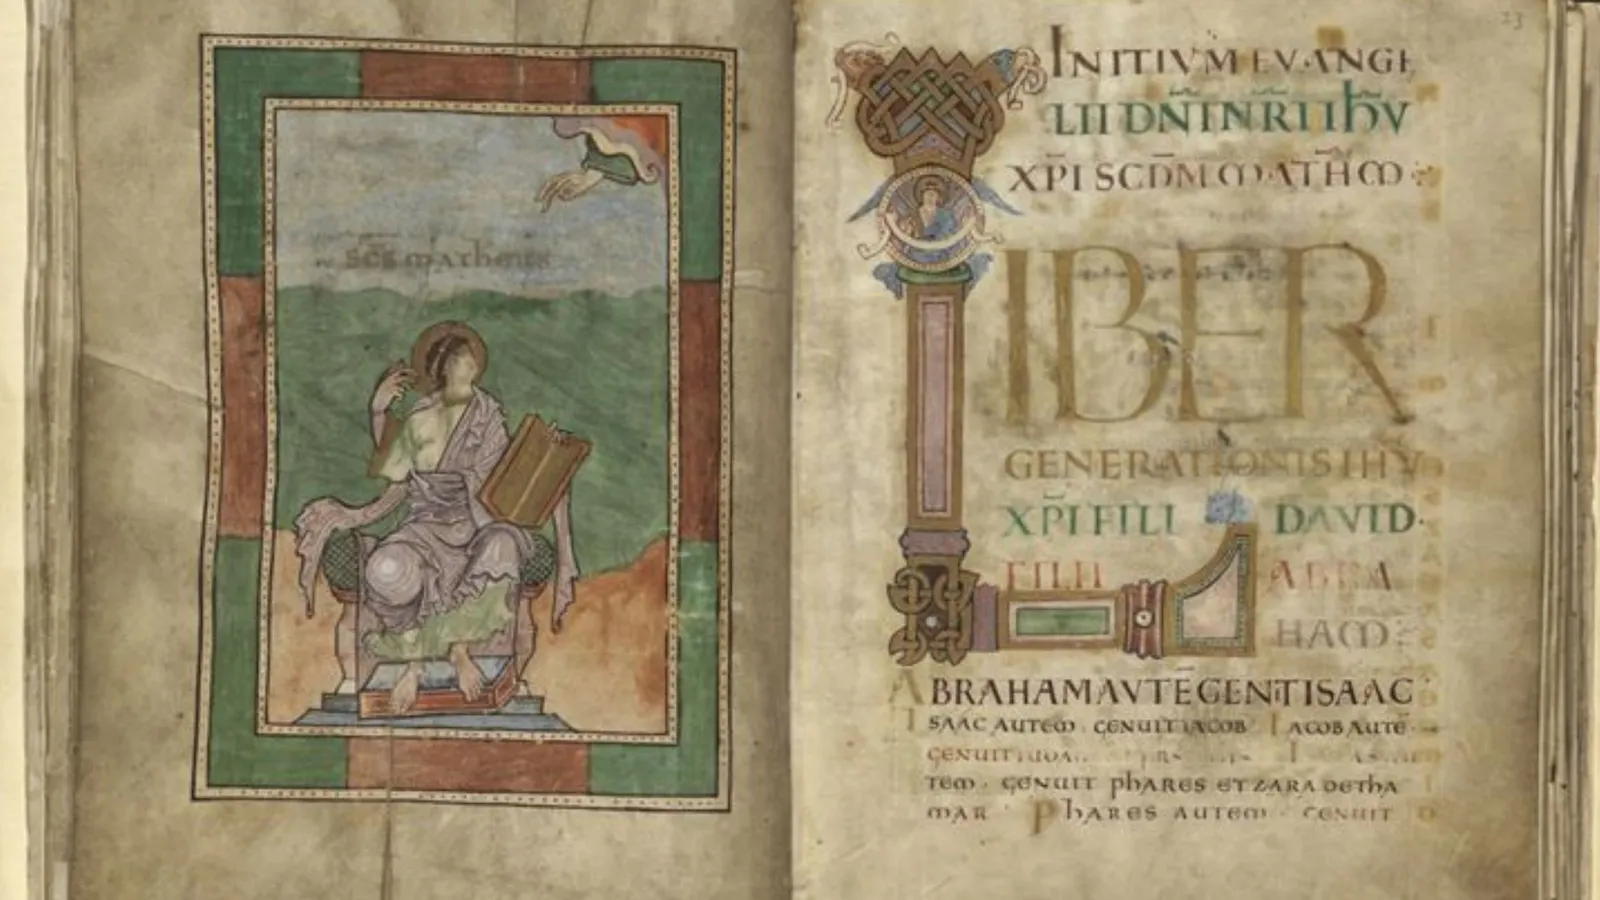 scs matheus
23
INITIUM EUANGE
LII DNI NRI IHU
XPI SCDM MATHM:
LIBER
GENERATIONIS IHU
XPI FILI DAVID·
FILII ABRA
HAM:
ABRAHAM AUTĒ GENIT ISAAC
ISAAC AUTEM· GENUIT IACOB IACOB AUTĒ·
GENUIT IUDA
TEM· GENUIT phARES ET ZARA DE ThA
MAR PhARES AUTEM· GENUIT